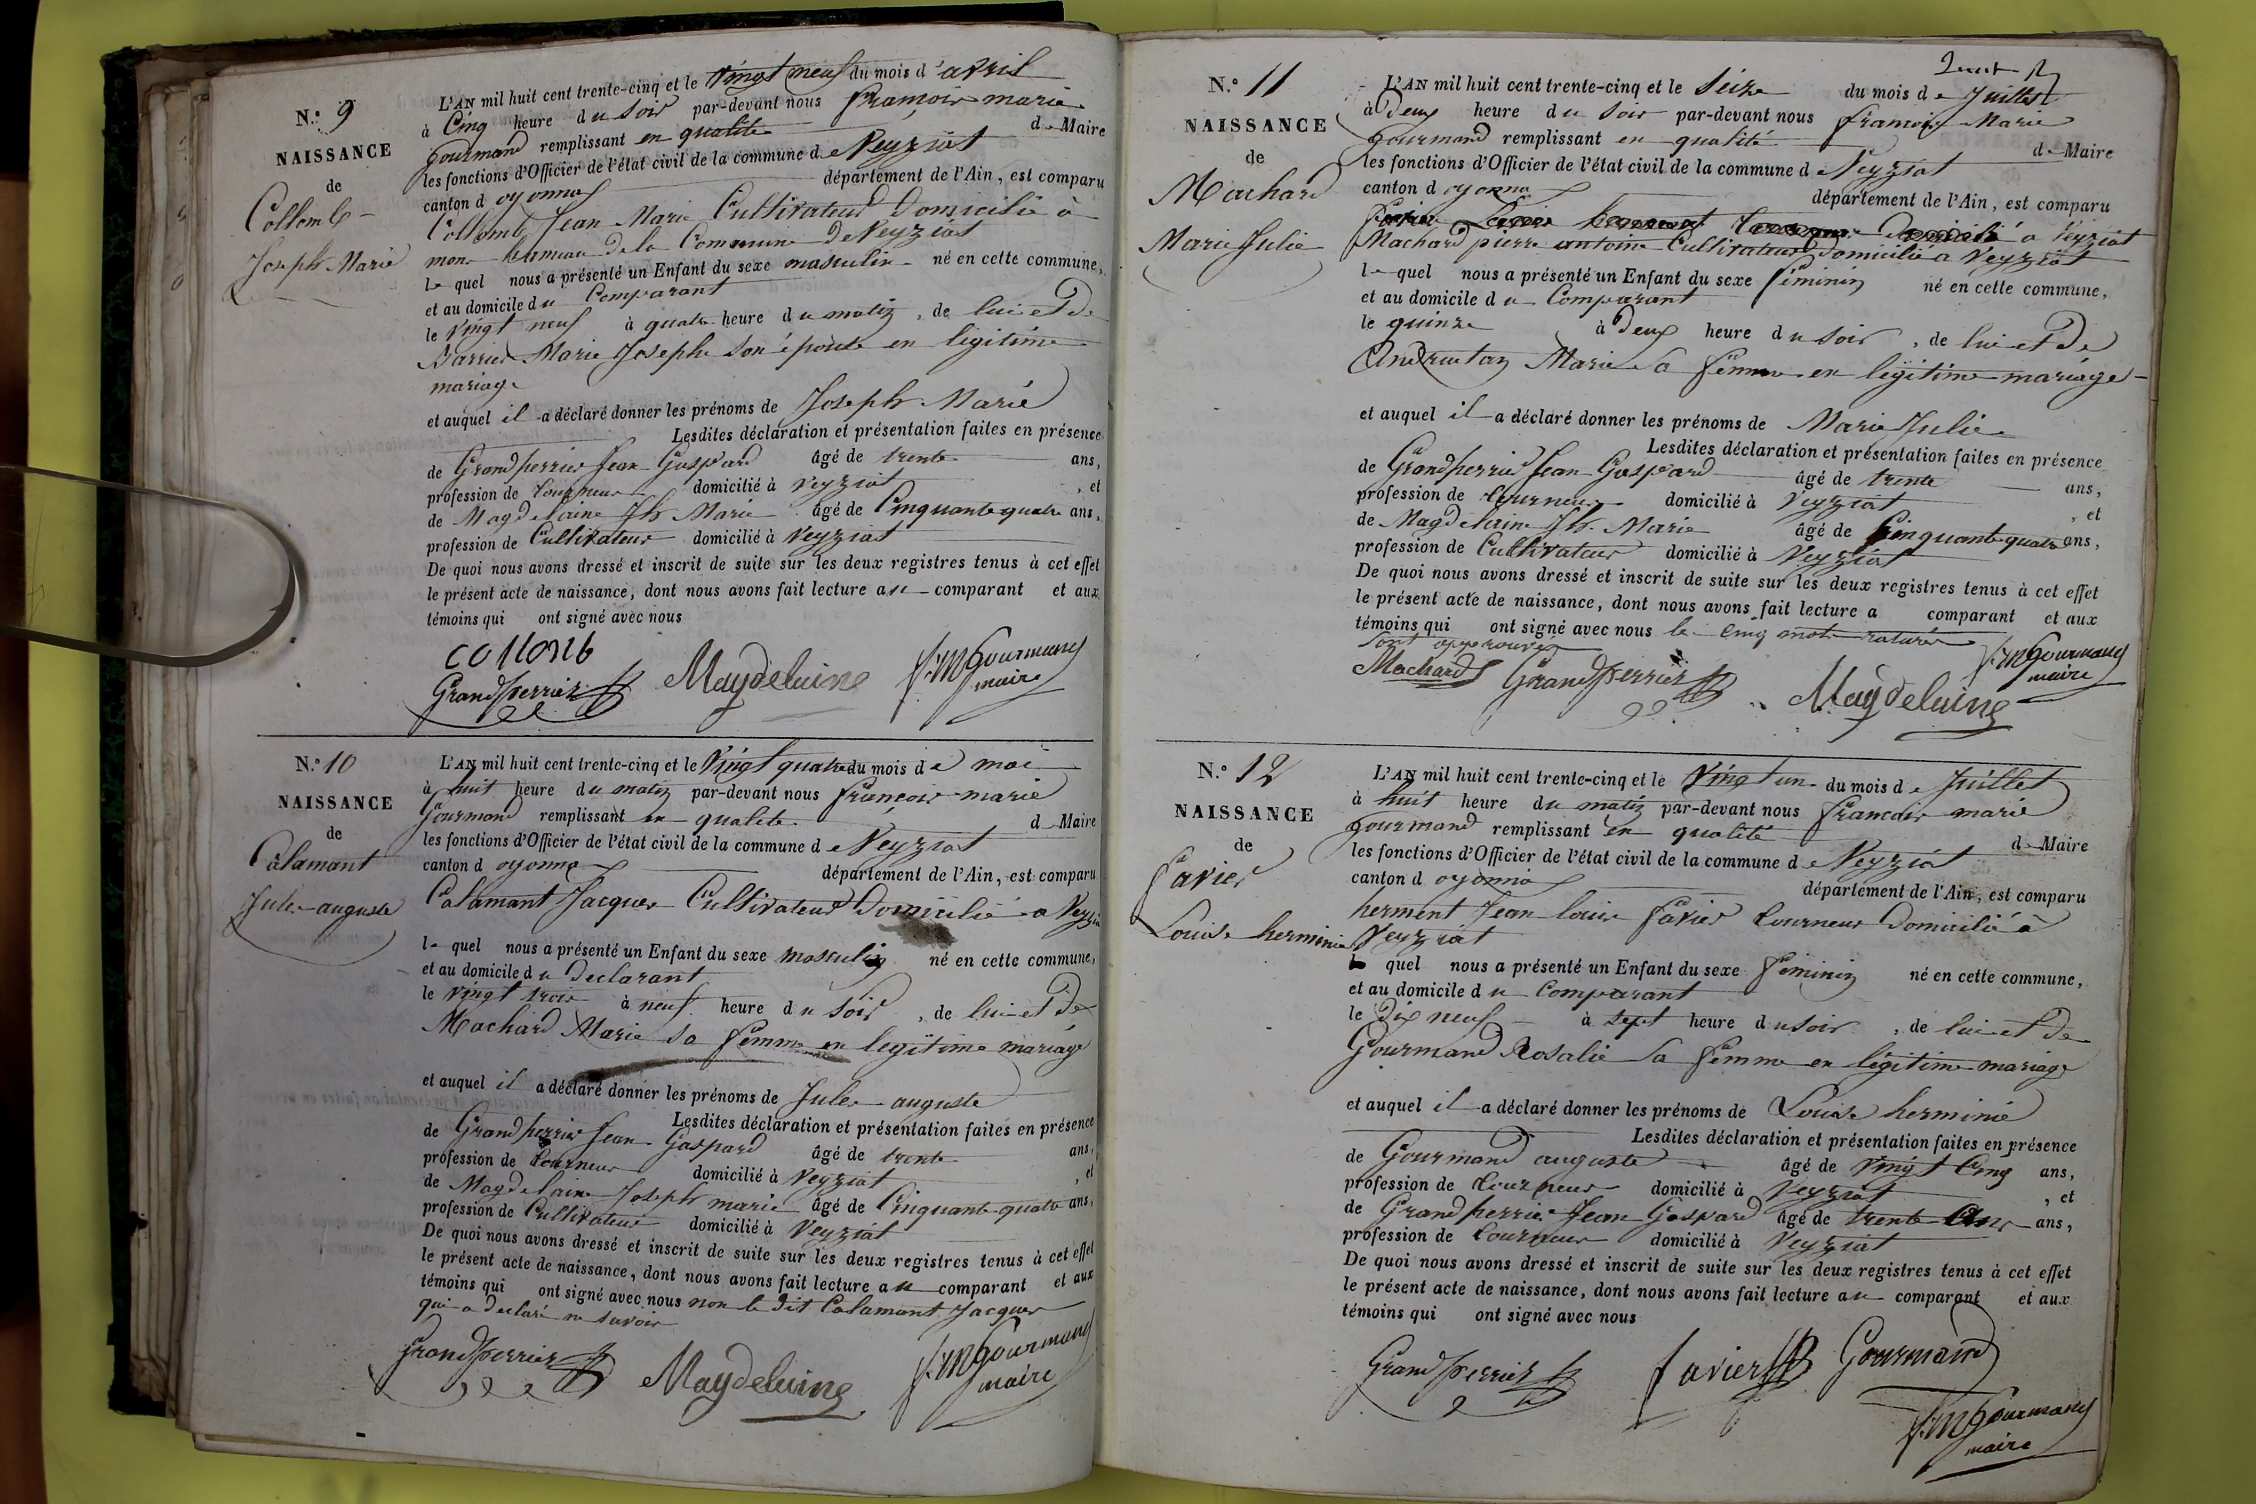 N.° 9
NAISSANCE
de
Collomb
Joseph Marie
L'AN mil huit cent trente-cinq et le vingt neuf du mois d'avril
à Cinq heure du soir par-devant nous françois marie
gourmand remplissant en qualité de Maire
les fonctions d'Officier de l'état civil de la commune de Veyziat
canton d oyonnas département de l'Ain, est comparu
Collomb Jean Marie Cultivateur Domicilié à
mons hameau de la Commune de Veyziat
le quel nous a présenté un Enfant du sexe masculin né en cette commune,
et au domicile du Comparant
le vingt neuf à quatre heure du matin, de lui et de
Marie Josephe son épouse en légitime
mariage
et auquel il a déclaré donner les prénoms de Joseph Marie
Lesdites déclaration et présentation faites en présence
de Grandperrier Jean Gaspard âgé de trente ans,
profession de tourneur domicilié à Veyziat, et
de Magdelaine Jh Marie âgé de Cinquante quatre ans,
profession de Cultivateur domicilié à Veyziat
De quoi nous avons dressé et inscrit de suite sur les deux registres tenus à cet effet
le présent acte de naissance, dont nous avons fait lecture au comparant et aux
témoins qui ont signé avec nous
collomb
Grandperrier Magdelaine f. m gourmand
maire
N.° 10
NAISSANCE
de
Calamant
Jules auguste
L'AN mil huit cent trente-cinq et le Vingt quatre du mois de mai
à huit heure du matin par-devant nous françois marie
Gourmand remplissant en qualité de Maire
les fonctions d'Officier de l'état civil de la commune de Veyziat
canton d oyonna département de l'Ain, est comparu
Calamant Jacques Cultivateur Domicilié a Veyziat
le quel nous a présenté un Enfant du sexe masculin né en cette commune,
et au domicile du declarant
le vingt trois à neuf heure du soir, de lui et de
Machard Marie sa femme en legitime mariage
et auquel il a déclaré donner les prénoms de Jules auguste
Lesdites déclaration et présentation faites en présence
de Grandperrier Jean Gaspard âgé de trente ans,
profession de tourneur domicilié à Veyziat, et
de Magdelaine Joseph marie âgé de Cinquante quatre ans,
profession de Cultivateur domicilié à Veyziat
De quoi nous avons dressé et inscrit de suite sur les deux registres tenus à cet effet
le présent acte de naissance, dont nous avons fait lecture au comparant et aux
témoins qui ont signé avec nous non le dit Calamant Jacques
qui a declaré ne savoir
Grandperrier Magdelaine f. m gourmand
maire
N.° 11
NAISSANCE
de
Machard
Marie Julie
L'AN mil huit cent trente-cinq et le seize du mois de Juillet
à Deux heure du soir par-devant nous françois Marie
gourmand remplissant en qualité de Maire
les fonctions d'Officier de l'état civil de la commune de Veyziat
canton d oyonna département de l'Ain, est comparu
a Veyziat
Machard pierre antoine Cultivateur Domicilié a Veyziat
le quel nous a présenté un Enfant du sexe féminin né en cette commune,
et au domicile du Comparant
le quinze à Deux heure du soir, de lui et de
Marie sa femme en légitime mariage
et auquel il a déclaré donner les prénoms de Marie Julie
Lesdites déclaration et présentation faites en présence
de Grandperrier Jean Gaspard âgé de trente ans,
profession de tourneur domicilié à Veyziat, et
de Magdelaine Jh Marie âgé de Cinquante quatre ans,
profession de Cultivateur domicilié à Veyziat
De quoi nous avons dressé et inscrit de suite sur les deux registres tenus à cet effet
le présent acte de naissance, dont nous avons fait lecture a comparant et aux
témoins qui ont signé avec nous le cinq mots raturés
sont approuvés
Machard Grandperrier Magdelaine f. m gourmand
maire
N.° 12
NAISSANCE
de
favier
Louise herminie
L'AN mil huit cent trente-cinq et le Vingt un du mois de Juillet
à huit heure du matin par-devant nous françois marie
gourmand remplissant en qualité de Maire
les fonctions d'Officier de l'état civil de la commune de Veyziat
canton d oyonna département de l'Ain, est comparu
herment Jean louis favier tourneur Domicilié à
Veyziat
le quel nous a présenté un Enfant du sexe féminin né en cette commune,
et au domicile du Comparant
le Dix neuf à sept heure du soir, de lui et de
Gourmand Rosalie sa femme en légitime mariage
et auquel il a déclaré donner les prénoms de Louise herminie
Lesdites déclaration et présentation faites en présence
de Gourmand auguste âgé de vingt Cinq ans,
profession de tourneur domicilié à Veyziat, et
de Grandperrier Jean Gaspard âgé de trente ans ans,
profession de tourneur domicilié à Veyziat
De quoi nous avons dressé et inscrit de suite sur les deux registres tenus à cet effet
le présent acte de naissance, dont nous avons fait lecture au comparant et aux
témoins qui ont signé avec nous
Grandperrier favier Gourmand
f. m gourmand
maire